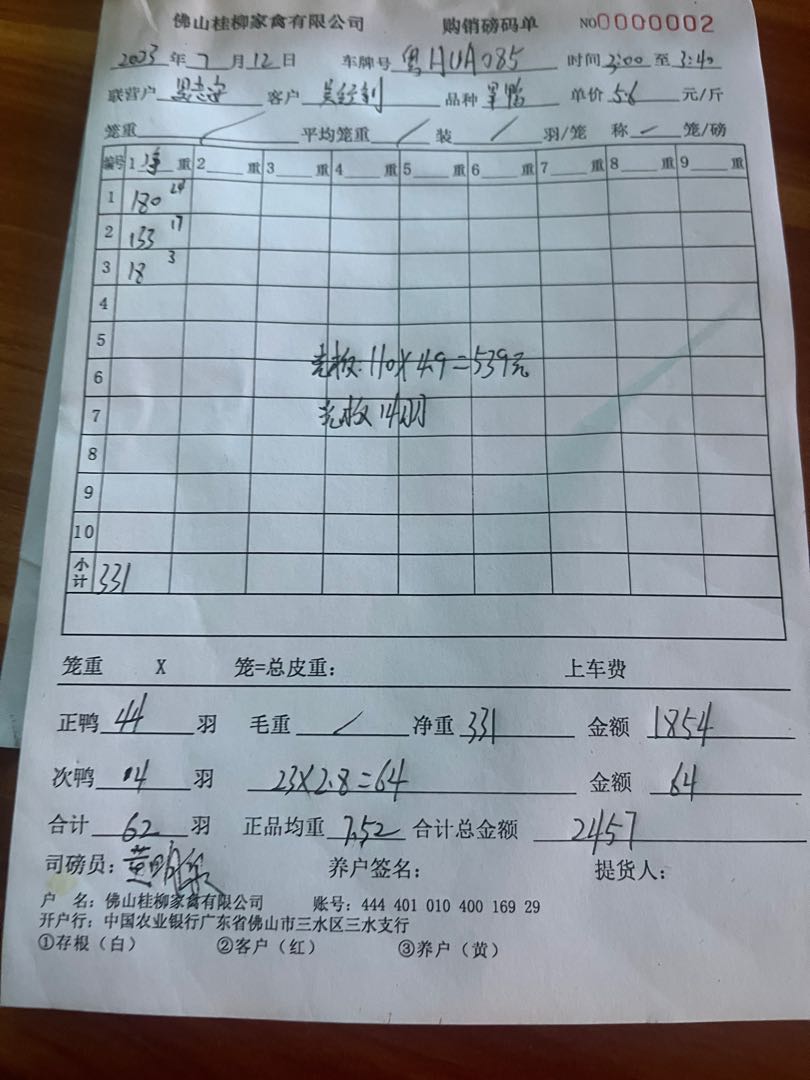 佛山桂柳家禽有限公司 购销磅码单 NO0000002
2023年7月12日 车牌号粤HUA085 时间3:00至3:40
联营户 客户 品种 单价5.6元/斤
笼重／平均笼重／装／羽/笼 称－笼/磅
编号 1净重 2重 3重 4重 5重 6重 7重 8重 9重
1 180 24
2 133 17
3 18 3
4
5
6 110X4.9=539元
7 14羽
8
9
10
小计 331
笼重 X 笼=总皮重： 上车费
正鸭44羽 毛重／净重331 金额1854
次鸭4羽 23X2.8=64 金额64
合计62羽 正品均重7.52合计总金额2457
司磅员：黄明 养户签名： 提货人：
户 名：佛山桂柳家禽有限公司 账号：444 401 010 400 169 29
开户行：中国农业银行广东省佛山市三水区三水支行
①存根（白） ②客户（红） ③养户（黄）